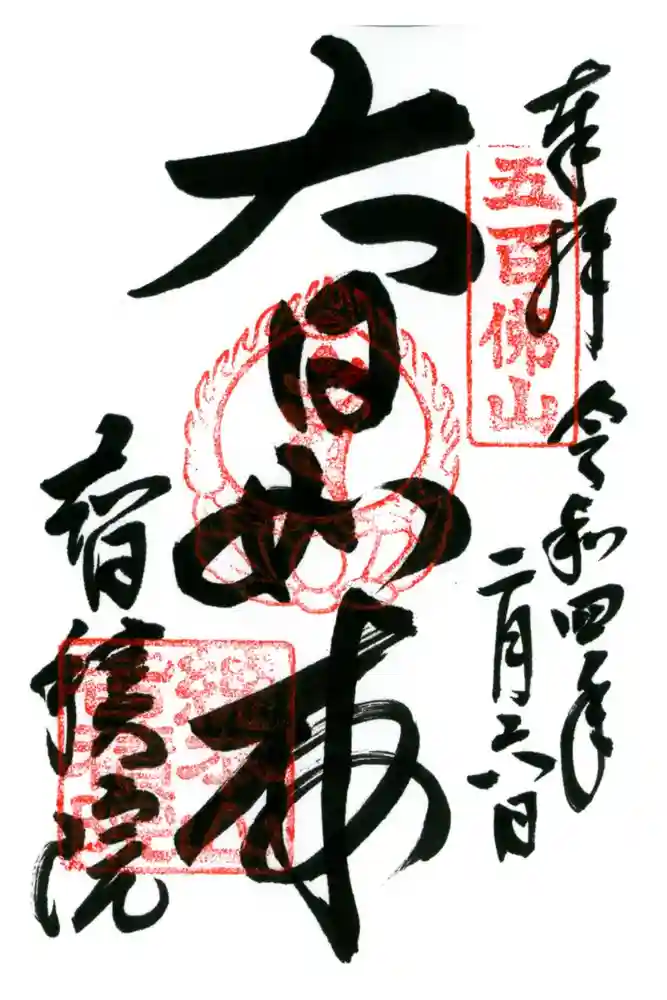 奉拝 令和四年
二月六日
五百佛山
大日如来
智積院